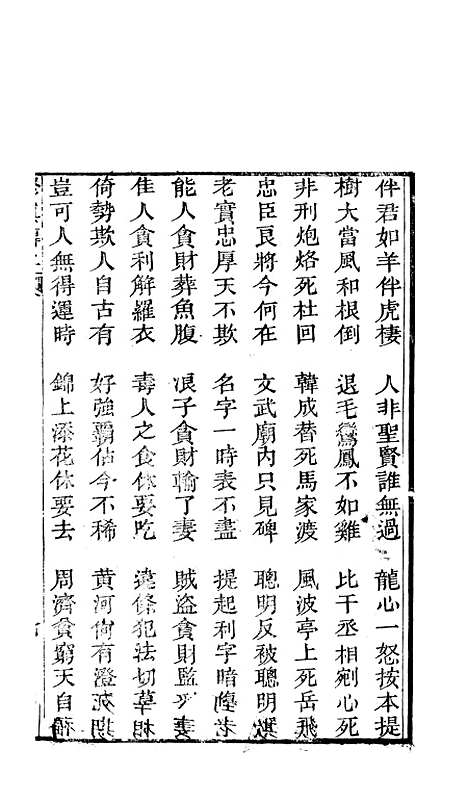 伴君如羊伴虎棲 人非聖賢誰無過 龍心一怒按本提
樹大當風和根倒 退毛鸞鳳不如雞 比干丞相剜心死
非刑炮烙死杜回 韓成替死馬家渡 風波亭上死岳飛
忠臣良將今何在 文武廟內只見碑 聰明反被聰明
老實忠厚天不欺 名字一時表不盡 提起利字暗
能人貪財葬魚腹 浪子貪財輸了妻 賊盜貪財監
佳人貪利解羅衣 毒人之食休要吃 違條犯法切草相
倚勢欺人自古有 好強霸佔今不稀 黃河尚有澄
豈可人無得運時 錦上添花休要去 周濟貧窮天自